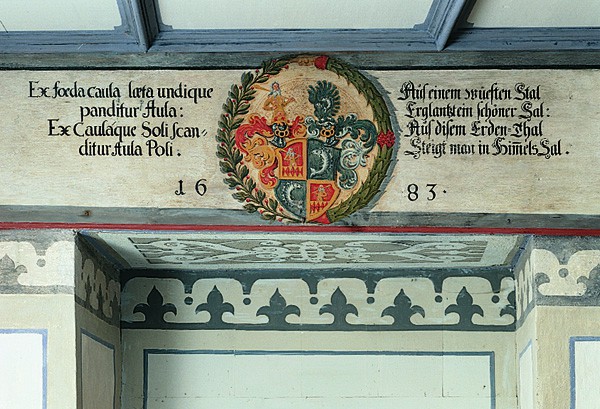 Ex fœda caula læta undique
panditur Aula:
Ex Caulaque Soli scan-
ditur Aula Poli.
Auß einem wüesten Stal
Erglantzt ein schöner Sal:
Auß disem Erden-Thal
Steigt man in Him̃els Sal.
16 83.